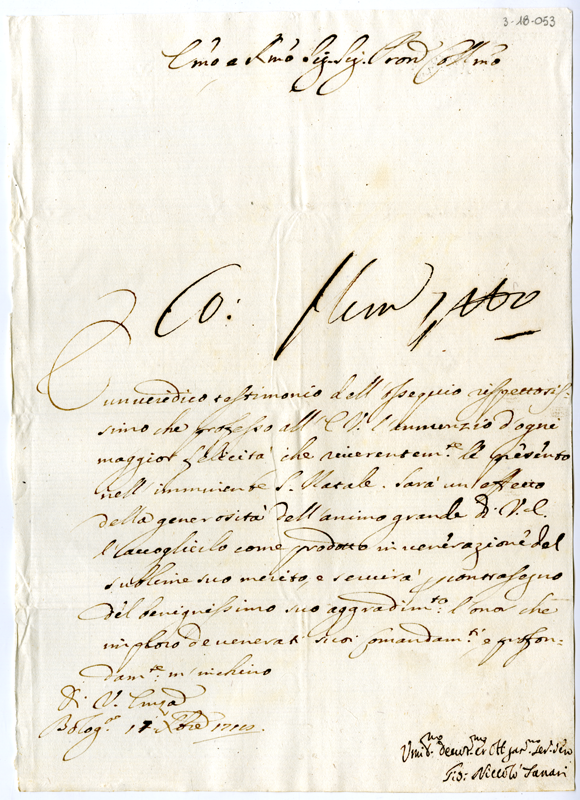 3-18-053
Emo e Rmo Sig. Sig. Pron Collmo
È un veridico testimonio dell'ossequio rispettosis-
simo che professo all'E.V. l'annunzio d'ogni
maggior felicità che riverentem.te le presento
nell'imminente S. Natale. Sarà un effetto
della generosità dell'animo grande di V.E.
l'accoglierlo come prodotto in venerazione del
sublime suo merito, e servirà contrasegno
del benignissimo suo aggradim.to l'onor che
imploro de venerati suoi Comandam.ti e profon-
dam.te m'inchino
Di V. Emza
Bolog.a 17 Xbre
Umil. devot. et obligat. ser. vero
Gio: Niccolò Tanari